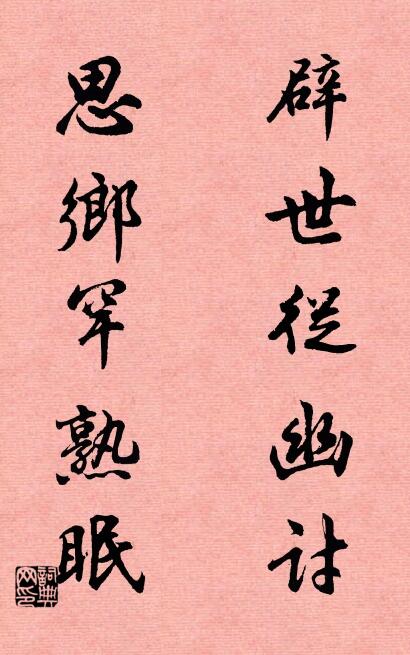 辟世從幽討
思鄉罕熟眠
詞典网印